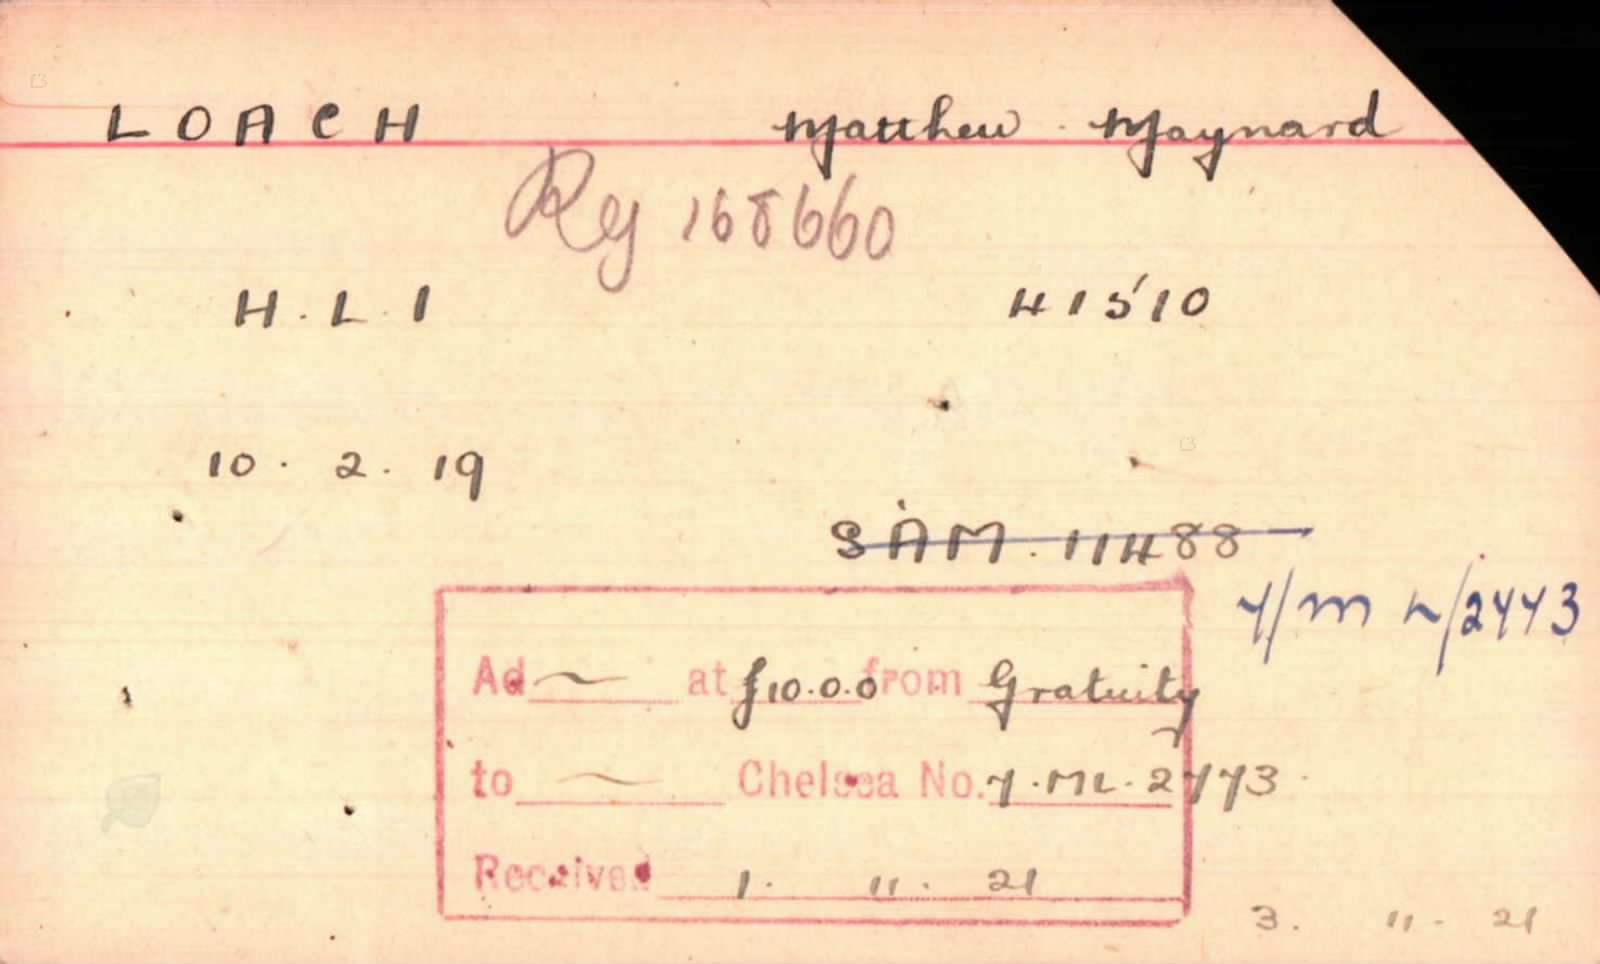 LOACH Matthew Maynard
Reg 168660
H.L.I 41510
10. 2. 19
SAM. 11488
7/M L/2773
Ad ~ at £10.0.0 from Gratuity
to ~ Chelsea No. 7.ML.2773
Received 1. 11. 21
3. 11. 21